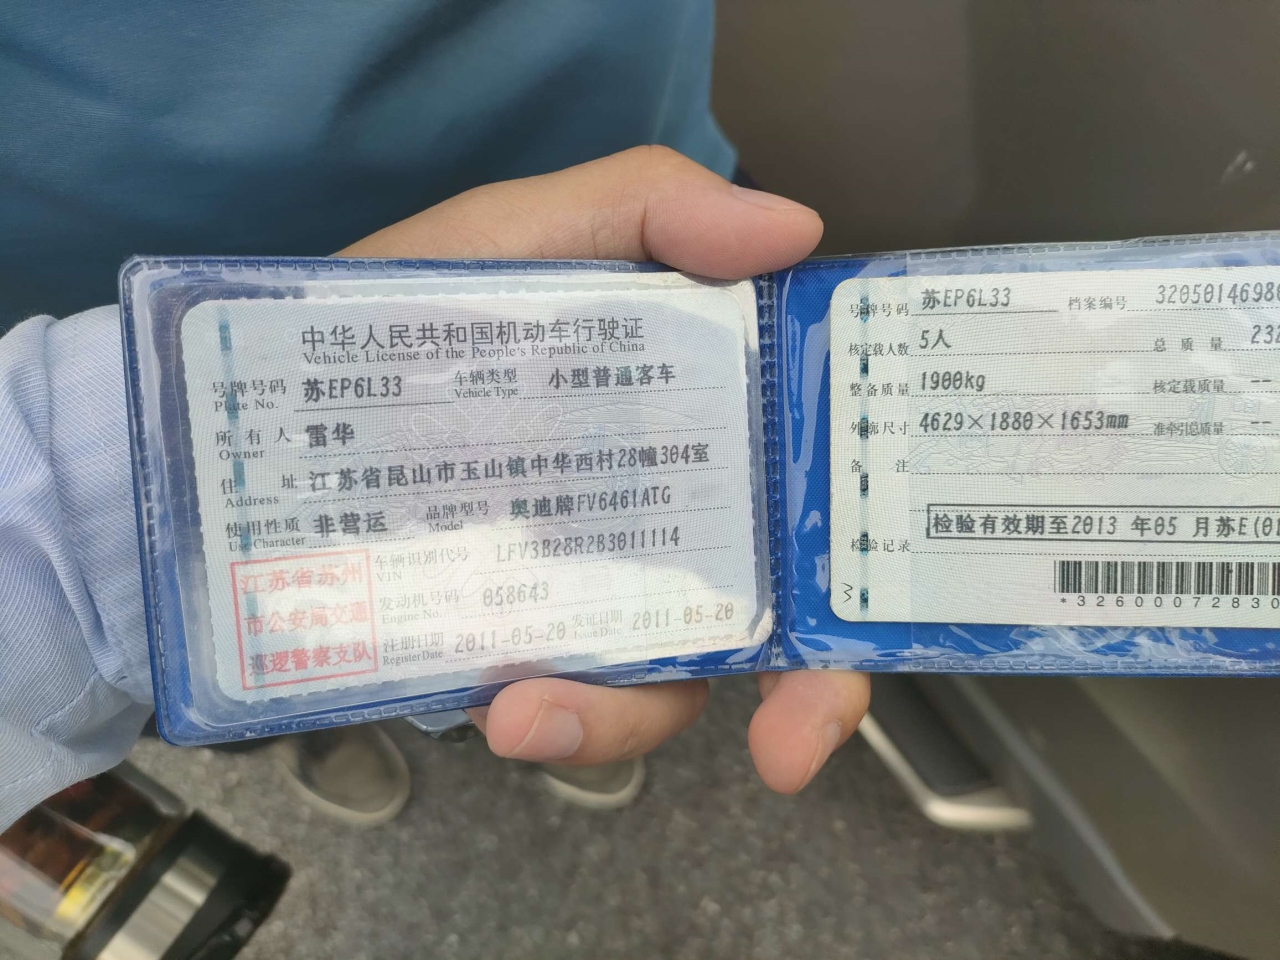 中华人民共和国机动车行驶证
Vehicle License of the People's Republic of China
号牌号码 苏EP6L33 车辆类型 小型普通客车
Plate No. Vehicle Type
所有人 雷华
Owner
住址 江苏省昆山市玉山镇中华西村28幢304室
Address
使用性质 非营运 品牌型号 奥迪牌FV6461ATG
Use Character Model
江苏省苏州
市公安局交通
巡逻警察支队
车辆识别代号 LFV3B28R2B3011114
VIN
发动机号码 058643
Engine No.
注册日期 2011-05-20 发证日期 2011-05-20
Register Date Issue Date
号牌号码 苏EP6L33 档案编号 3205014698
核定载人数 5人 总质量
整备质量 1900kg 核定载质量 --
外廓尺寸 4629×1880×1653mm 准牵引总质量 --
备注
检验记录 检验有效期至2013 年05 月苏E(01
*32600072830